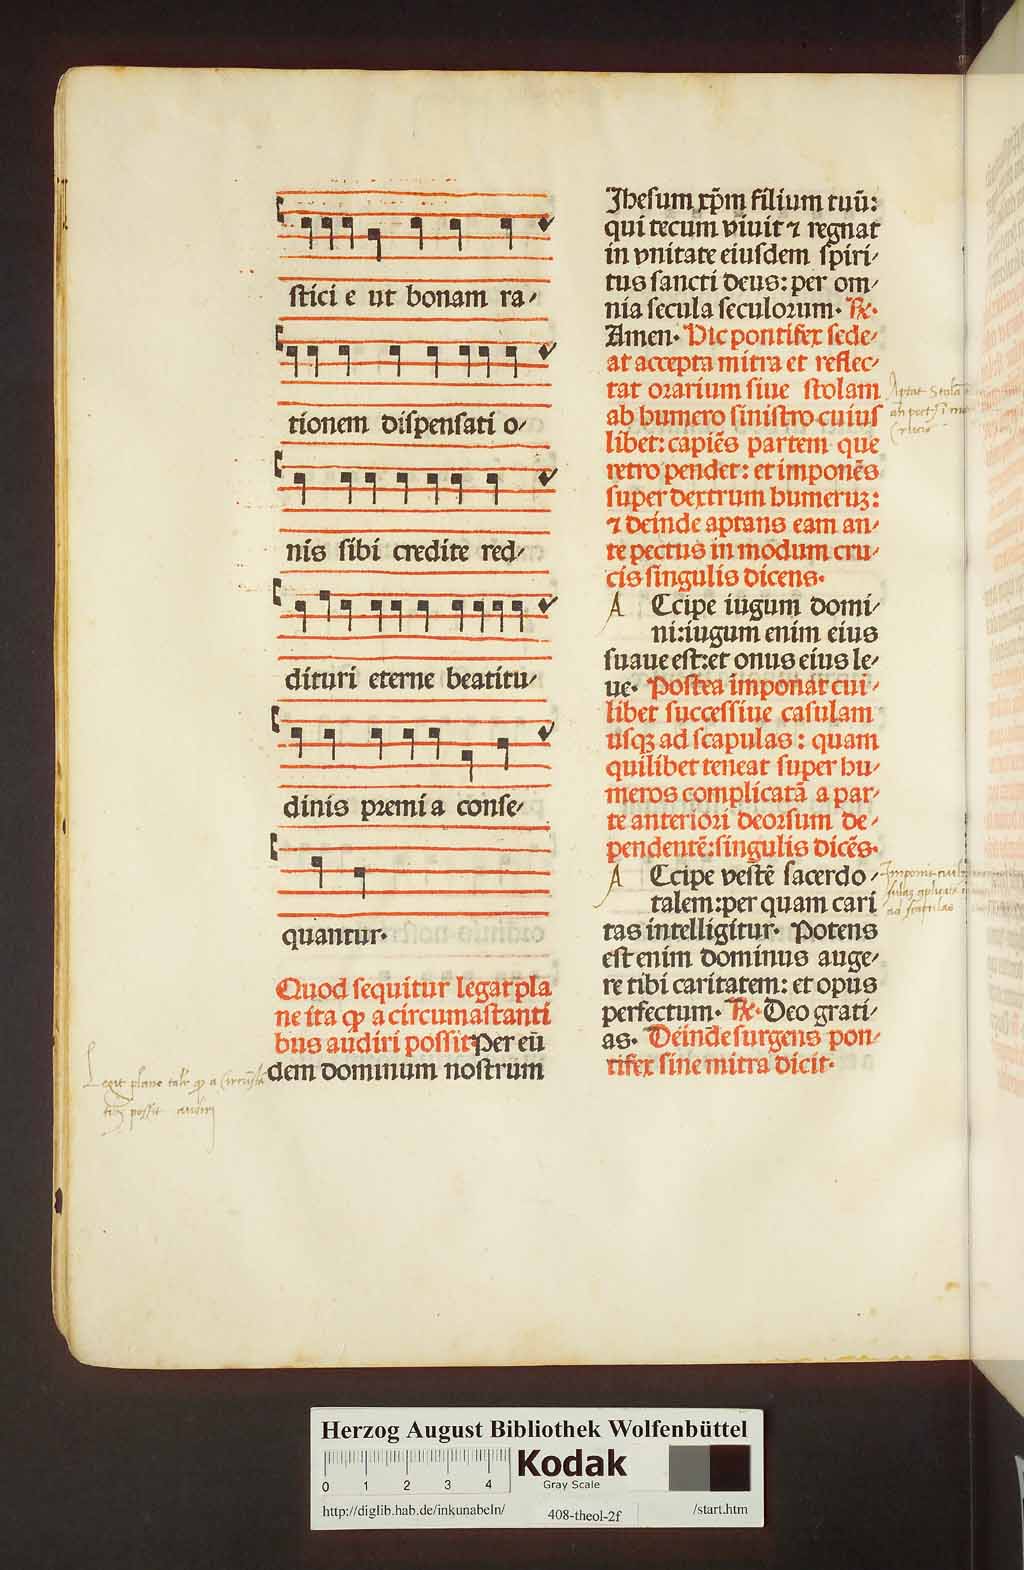 stici e ut bonam ra⸗
tionem dispensati o⸗
nis sibi credite red⸗
dituri eterne beatitu⸗
dinis premia conse⸗
quantur.
Quod sequitur legat pla
ne ita ꝙ a circumastanti
bus audiri possit Per eū
dem dominum nostrum
Legit plane tale ꝙ a Circūsta
possit audiri
Jhesum xp̄m filium tuū:
qui tecum viuit ⁊ regnat
in vnitate eiusdem spiri⸗
tus sancti deus: per om⸗
nia secula seculorum. ℟.
Amen. Hic pontifex sede⸗
at accepta mitra et reflec⸗
tat orarium siue stolam
ab humero sinistro cuius
libet: capiēs partem que
retro pendet: et imponēs
super dextrum humeruꝫ:
⁊ deinde aptans eam an⸗
te pectus in modum cru⸗
cis singulis dicens.
A Ccipe iugum domi⸗
ni: iugum enim eius
suaue est: et onus eius le⸗
ue. Postea imponat cui⸗
libet successiue casulam
usqꝫ ad scapulas: quam
quilibet teneat super hu⸗
meros complicatā a par⸗
te anteriori deorsum de⸗
pendentē: singulis dicēs.
A Ccipe vestē sacerdo⸗
talem: per quam cari
tas intelligitur. Potens
est enim dominus auge⸗
re tibi caritatem: et opus
perfectum. ℟. Deo grati⸗
as. Deinde surgens pon⸗
tifex sine mitra dicit.
Aptat Stolā
Imponit cuil
ad scapulas
Herzog August Bibliothek Wolfenbüttel
0 1 2 3 4
Kodak
Gray Scale
http://diglib.hab.de/inkunabeln/ 408-theol-2f /start.htm